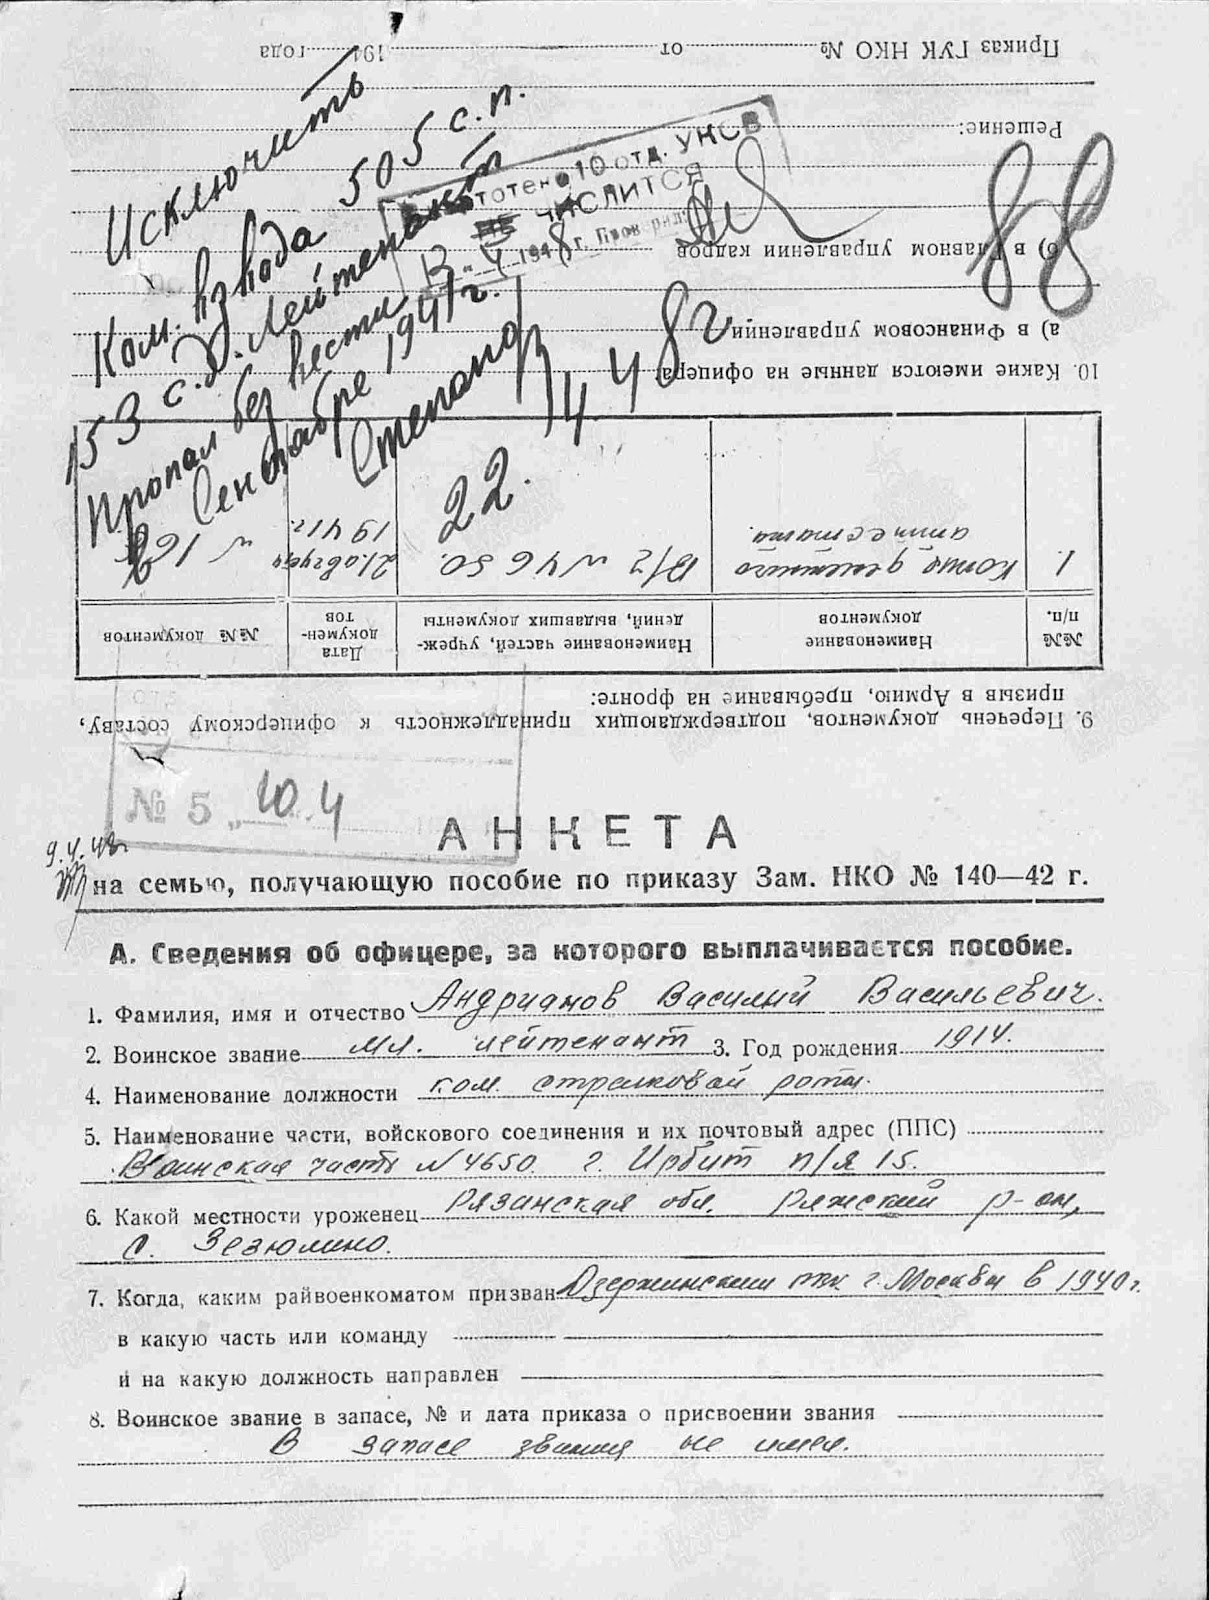 Исключить
Ком. взвода 505 с.п.
153 с.д. Лейтенант
Пропал без вести
в Сентябре 1941 г.
Степанов
22. 4. 48 г
88
В картотеке 10 отд. УНСВ
НЕ ЧИСЛИТСЯ
13 " 4 1948 г. Проверил:
Приказ ГУК НКО № от 194 года
Решение:
б) в Главном управлении кадров
а) в Финансовом управлении
10. Какие имеются данные на офицера:
1. Копия денежного аттестата. В/ч №4650. 21 августа 1941 г. № 16
№№ п/п. Наименование документов Наименование частей, учреждений, выдавших документы Дата документов №№ документов
призыв в Армию, пребывание на фронте:
9. Перечень документов, подтверждающих принадлежность к офицерскому составу,
№ 5 „ 10. 4
9.4.48г
АНКЕТА
на семью, получающую пособие по приказу Зам. НКО № 140—42 г.
А. Сведения об офицере, за которого выплачивается пособие.
1. Фамилия, имя и отчество Андрианов Василий Васильевич.
2. Воинское звание мл. лейтенант 3. Год рождения 1914.
4. Наименование должности ком. стрелковой роты.
5. Наименование части, войскового соединения и их почтовый адрес (ППС)
Воинская часть №4650. г. Ирбит п/я 15.
6. Какой местности уроженец Рязанская обл. Ряжский р-он,
с. Зезюлино.
7. Когда, каким райвоенкоматом призван Дзержинским рвк г. Москвы в 1940 г.
в какую часть или команду
и на какую должность направлен
8. Воинское звание в запасе, № и дата приказа о присвоении звания
В запасе звания не имел.